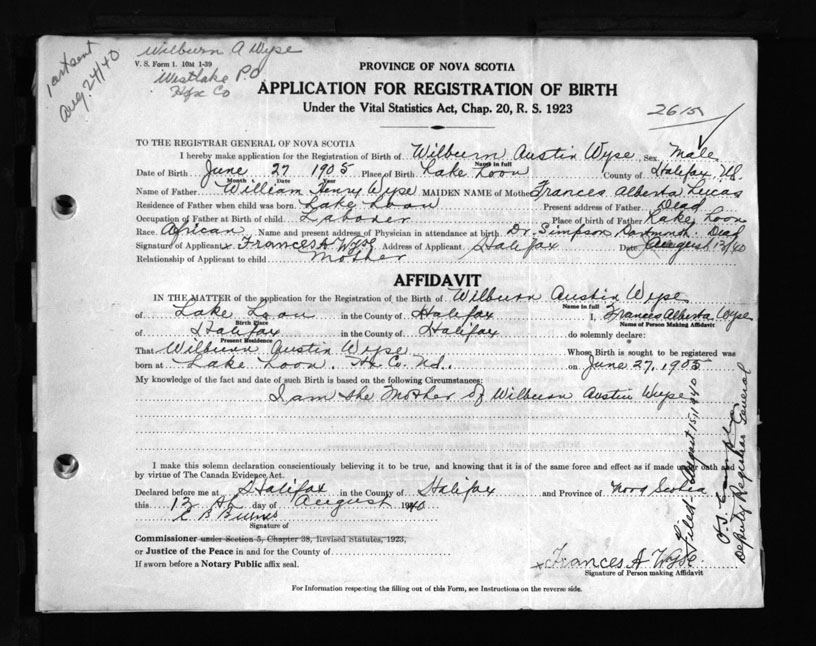 1 cert sent
Aug. 24/40
Wilburn A Wyse
V. S. Form 1. 10M 1-39
Westlake PO
Hfx Co
PROVINCE OF NOVA SCOTIA
APPLICATION FOR REGISTRATION OF BIRTH
Under the Vital Statistics Act, Chap. 20, R. S. 1923
2615
TO THE REGISTRAR GENERAL OF NOVA SCOTIA
I hereby make application for the Registration of Birth of Wilburn Austin Wyse Sex Male
Name in full
Date of Birth June 27 1905 Place of Birth Lake Loon County of Halifax
Month Date Year
Name of Father William Henry Wyse MAIDEN NAME of Mother Frances Alberta Lucas
Residence of Father when child was born. Lake Loon Present address of Father. Dead
Occupation of Father at Birth of child. Laborer Place of birth of Father Lake Loon
Race. African Name and present address of Physician in attendance at birth. Dr. Simpson Dartmouth. Dead
Signature of Applicant x Frances A Wyse Address of Applicant Halifax Date August 13/40
Relationship of Applicant to child Mother
AFFIDAVIT
IN THE MATTER of the application for the Registration of the Birth of Wilburn Austin Wyse
Name in full
of Lake Loon in the County of Halifax I, Frances Alberta Wyse
Birth Place Name of Person Making Affidavit
of Halifax in the County of Halifax do solemnly declare
Present Residence
That Wilburn Austin Wyse Whose Birth is sought to be registered was
born at Lake Loon, Hx Co. on June 27, 1905
My knowledge of the fact and date of such Birth is based on the following Circumstances:
I am the Mother of Wilburn Austin Wyse
I make this solemn declaration conscientiously believing it to be true, and knowing that it is of the same force and effect as if made under oath and
by virtue of The Canada Evidence Act.
Declared before me at Halifax in the County of Halifax and Province of Nova Scotia
this 13 th day of August 1940
C B Burns
Signature of
Commissioner under Section 5, Chapter 38, Revised Statutes, 1923,
or Justice of the Peace in and for the County of
If sworn before a Notary Public affix seal.
x Frances A Wyse
Signature of Person making Affidavit
For Information respecting the filling out of this Form, see Instructions on the reverse side.
Filed August 15, 1940
Deputy Registrar General